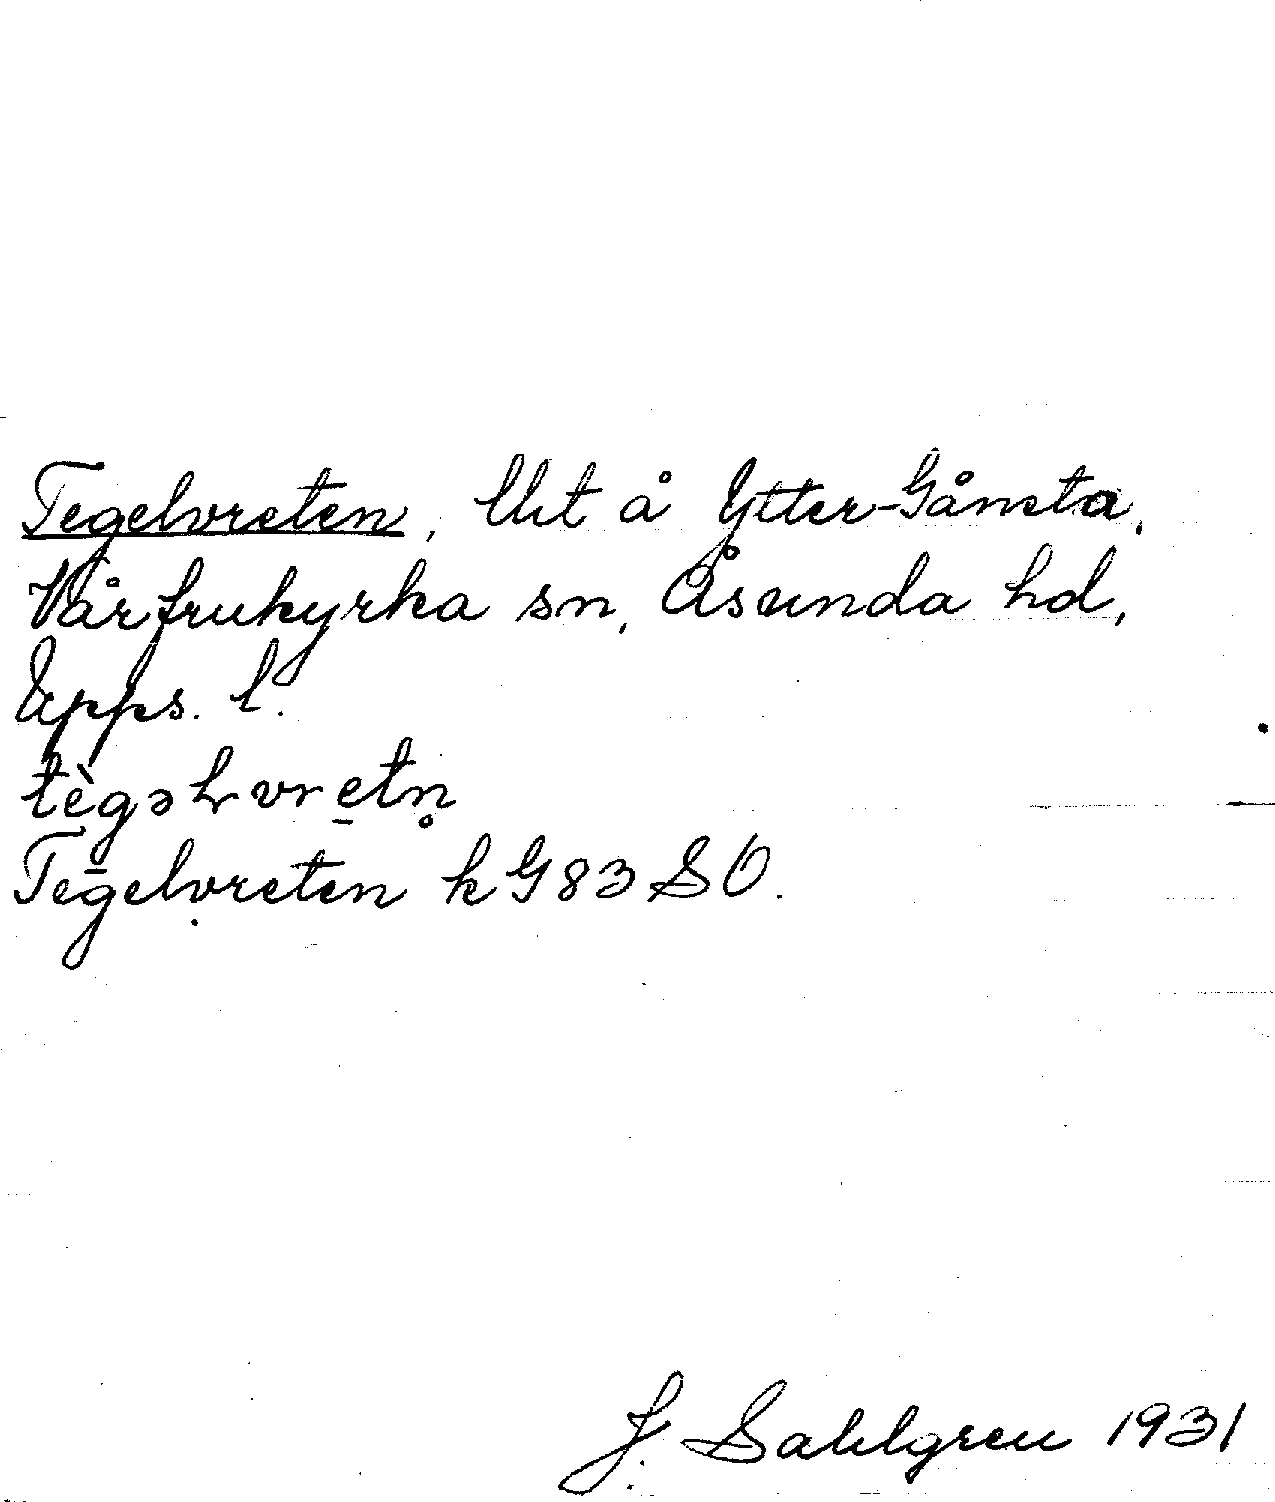 Tegelvreten, lht å Ytter-Gånsta,
Vårfrukyrka sn, Åsunda hd,
Upps. l.
tègəlvretn̥
Tegelvreten k G 83 SO.
J. Sahlgren 1931